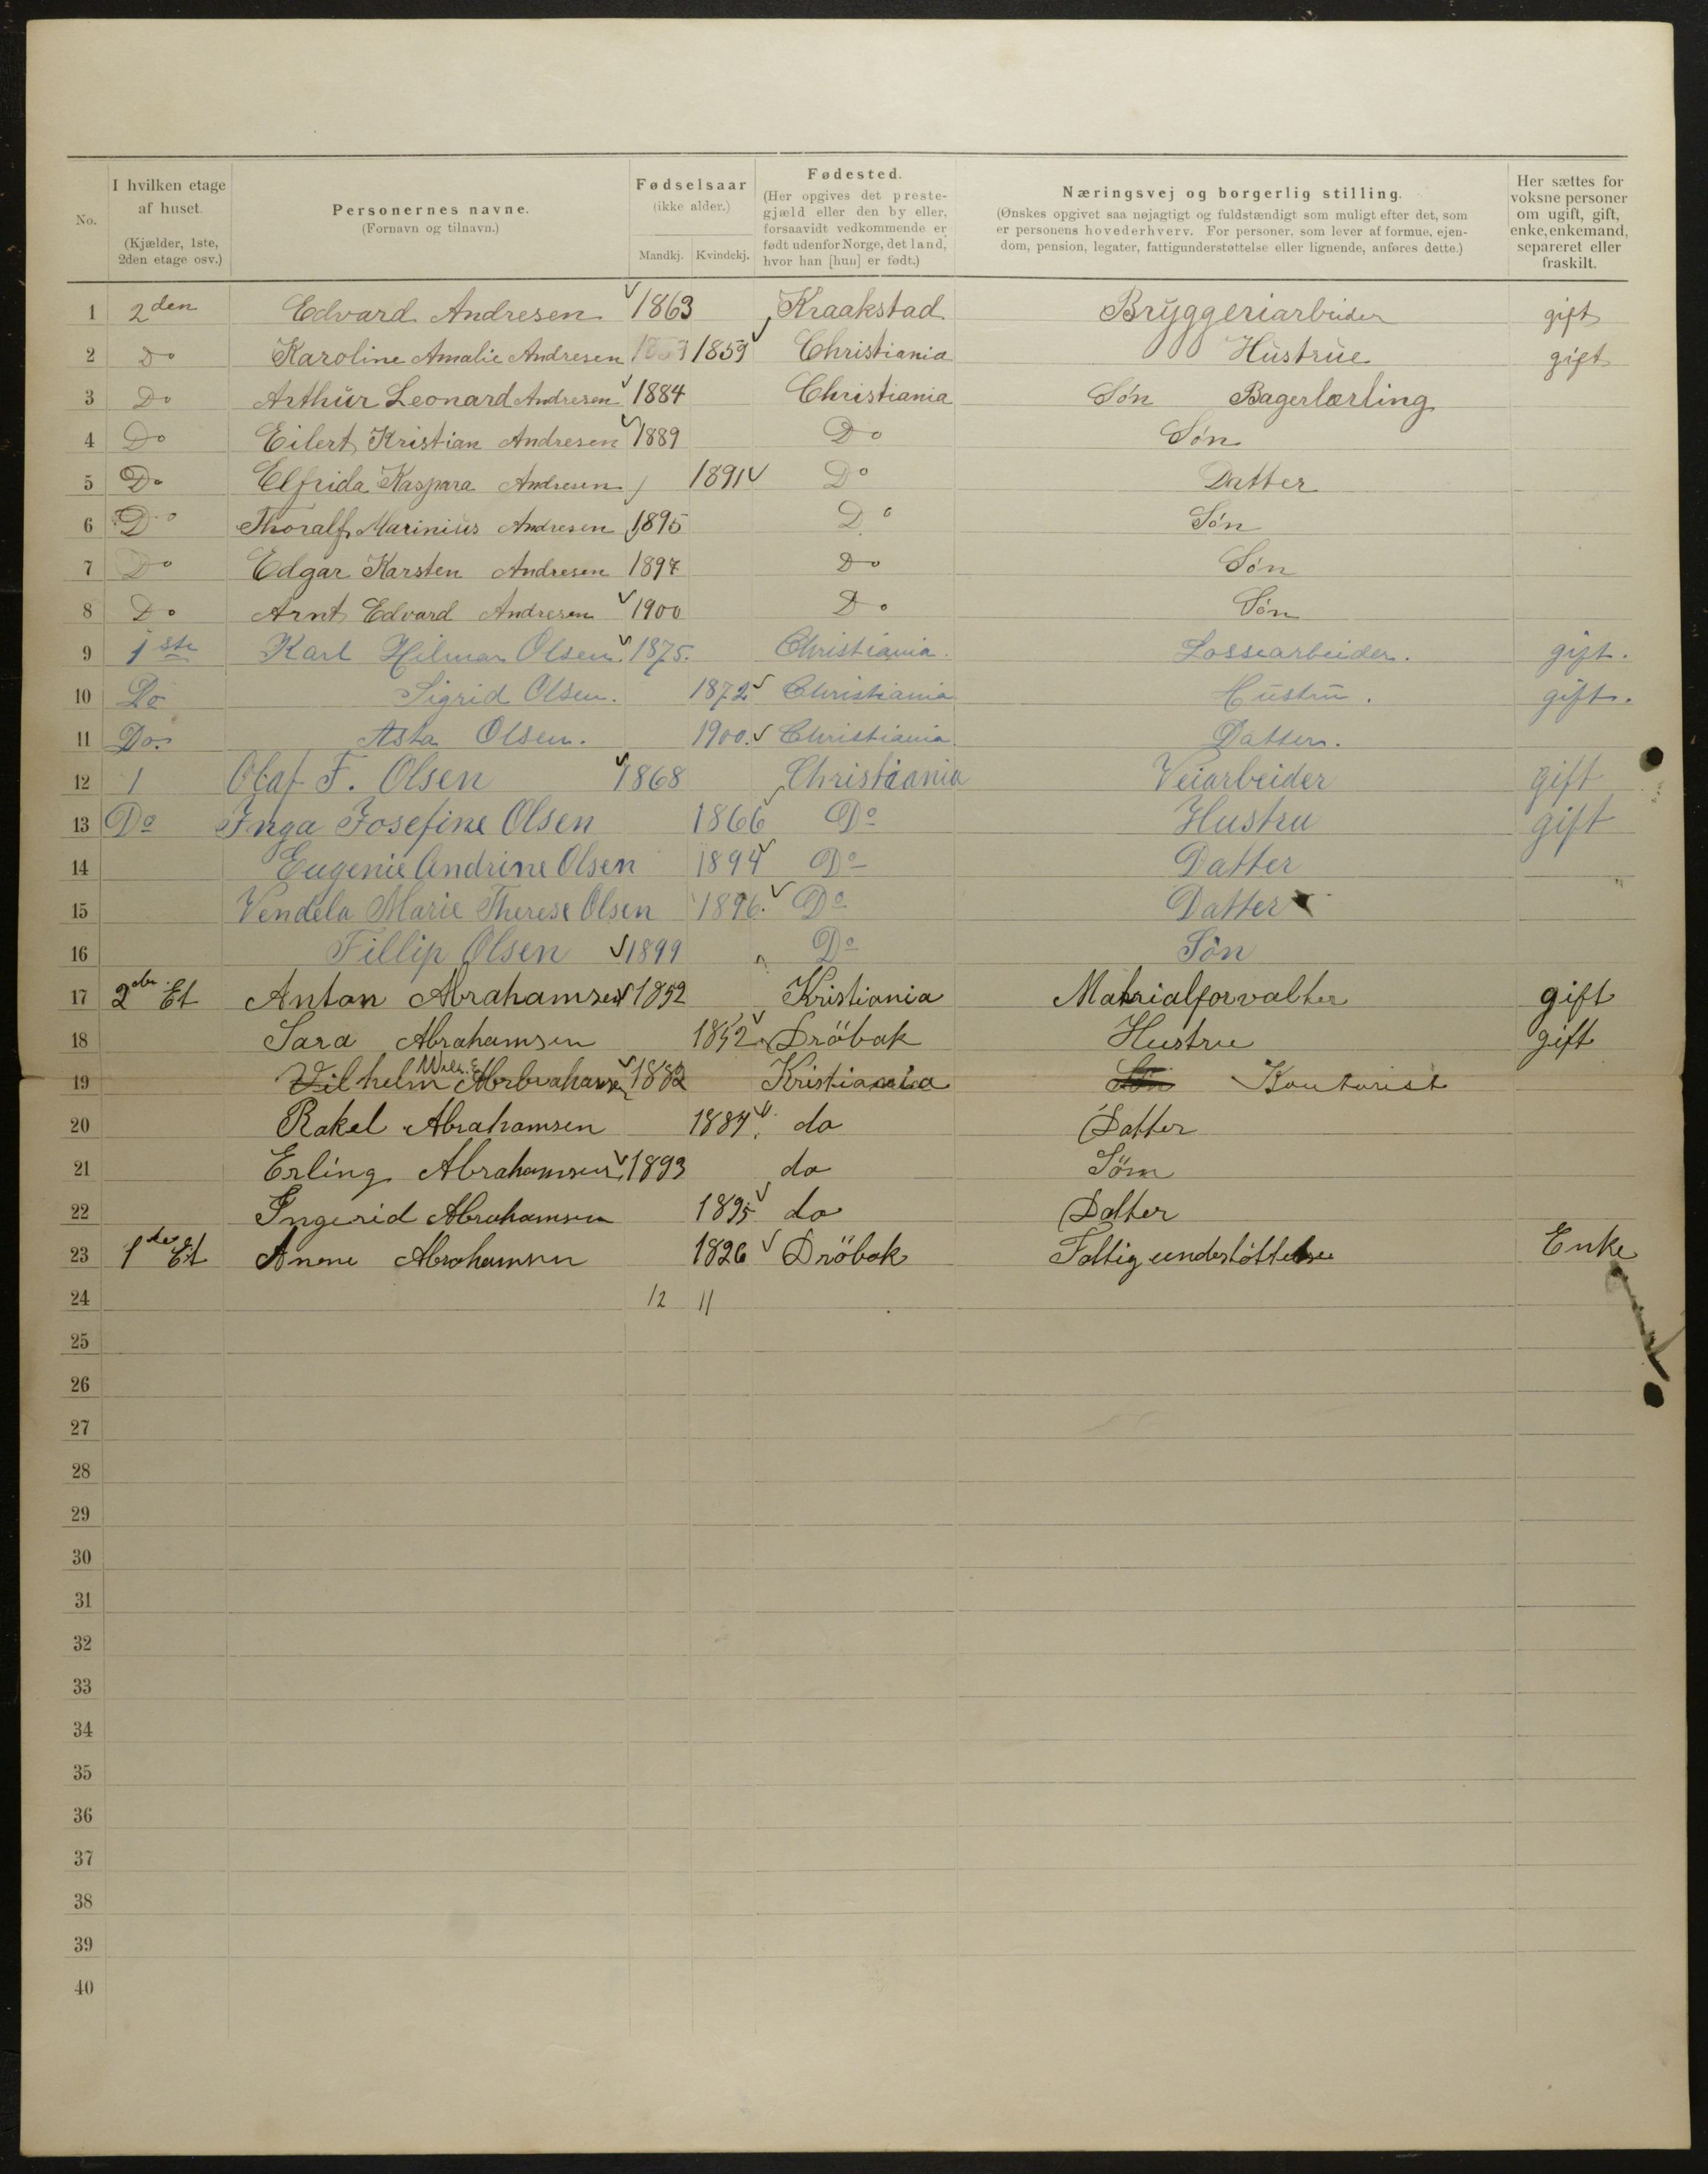 No.
I hvilken etage af huset. (Kjælder, 1ste, 2den etage osv.)
Personernes navne. (Fornavn og tilnavn.)
Fødselsaar (ikke alder.) Mandkj. Kvindekj.
Fødested. (Her opgives det prestegjæld eller den by eller, forsaavidt vedkommende er født udenfor Norge, det land, hvor han [hun] er født.)
Næringsvej og borgerlig stilling. (Ønskes opgivet saa nøjagtigt og fuldstændigt som muligt efter det, som er personens hovederhverv. For personer, som lever af formue, ejendom, pension, legater, fattigunderstøttelse eller lignende, anføres dette.)
Her sættes for voksne personer om ugift, gift, enke, enkemand, separeret eller fraskilt.
1 2den Edvard Andresen 1863 Kraakstad Bryggeriarbeider gift
2 Do Karoline Amalie Andresen 1859 1859 Christiania Hustrue gift
3 Do Arthur Leonard Andresen 1884 Christiania Søn Bagerlærling
4 Do Eilert Kristian Andresen 1889 Do Søn
5 Do Elfrida Kaspara Andresen 1891 Do Datter
6 Do Thoralf Marinius Andresen 1895 Do Søn
7 Do Edgar Karsten Andresen 1897 Do Søn
8 Do Arnt Edvard Andresen 1900 Do Søn
9 1ste Karl Hilmar Olsen 1875. Christiania. Lossearbeider. gift.
10 Do Sigrid Olsen. 1872 Christiania Hustru. gift.
11 Do. Asta Olsen. 1900. Christiania. Datter.
12 1 Olaf F. Olsen 1868 Christiania Veiarbeider gift
13 Do Inga Josefine Olsen 1866 Do Hustru gift
14 Eugenie Andrine Olsen 1894 Do Datter
15 Vendela Marie Therese Olsen 1896. Do Datter
16 Fillip Olsen 1899 Do Søn
17 2den Et Anton Abrahamsen 1852 Kristiania Matrialforvalter gift
18 Sara Abrahamsen 1852 Dröbak Hustru gift
19 Vilhelm Abrahamsen 1882 Kristiania Søn Kontorist
20 Rakel Abrahamsen 1884 do Datter
21 Erling Abrahamsen 1893 do Sön
22 Ingerid Abrahamsen 1895 do Datter
23 1ste Et Anne Abrahamsen 1826 Dröbak Fattigunderstöttelse Enke
24 12 11
25
26
27
28
29
30
31
32
33
34
35
36
37
38
39
40